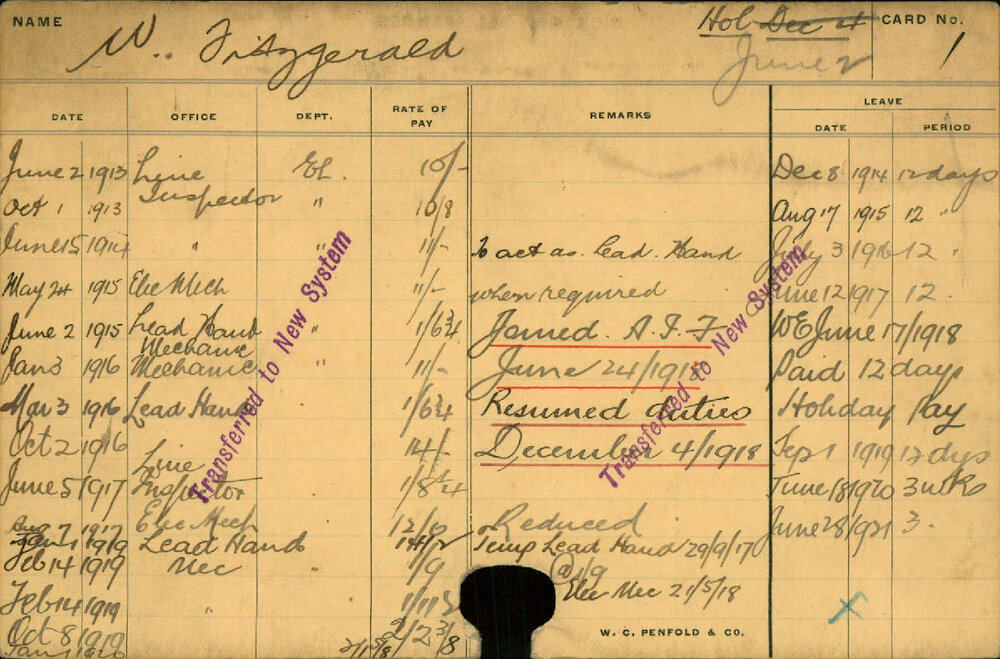 NAME W. Fitzgerald Hol Dec 4 CARD No. 1
June 2
LEAVE
DATE OFFICE DEPT. RATE OF PAY REMARKS DATE PERIOD
June 2 1913 Line El. 10/- Dec 8 1914 12 days
Inspector
Oct 1 1913 " 10/8 Aug 17 1915 12 "
June 15 1914 " " 11/- to act as Lead. Hand July 3 1916 12 "
May 24 1915 Elec Mech 11/- when required June 12 1917 12.
June 2 1915 Lead Hand " 1/6¾ Joined A.I.F. WE June 17/1918
Mechanic
Jan 3 1916 Mechanic " 11/- June 24/1918 Paid 12 days
Mar 3 1916 Lead Hand 1/6¾ Resumed duties Holiday Pay
Oct 2 1916 14/- December 4/1918 Sept 1 1919 12 dys
Line
June 5 1917 Inspector 1/8¼ June 18 1920 3 wks
Aug 7 1917 Elec Mech Reduced June 28/1921 3.
Jan 1 1919 Lead Hand Temp Lead Hand 29/9/17
Feb 14 1919 Mec " 1/9 @ 1/9
Elec Mec 21/5/18
Feb 14 1919 "
Oct 8 1919 2/2⅜
W. C. PENFOLD & CO.
Transferred to New System
Transferred to New System